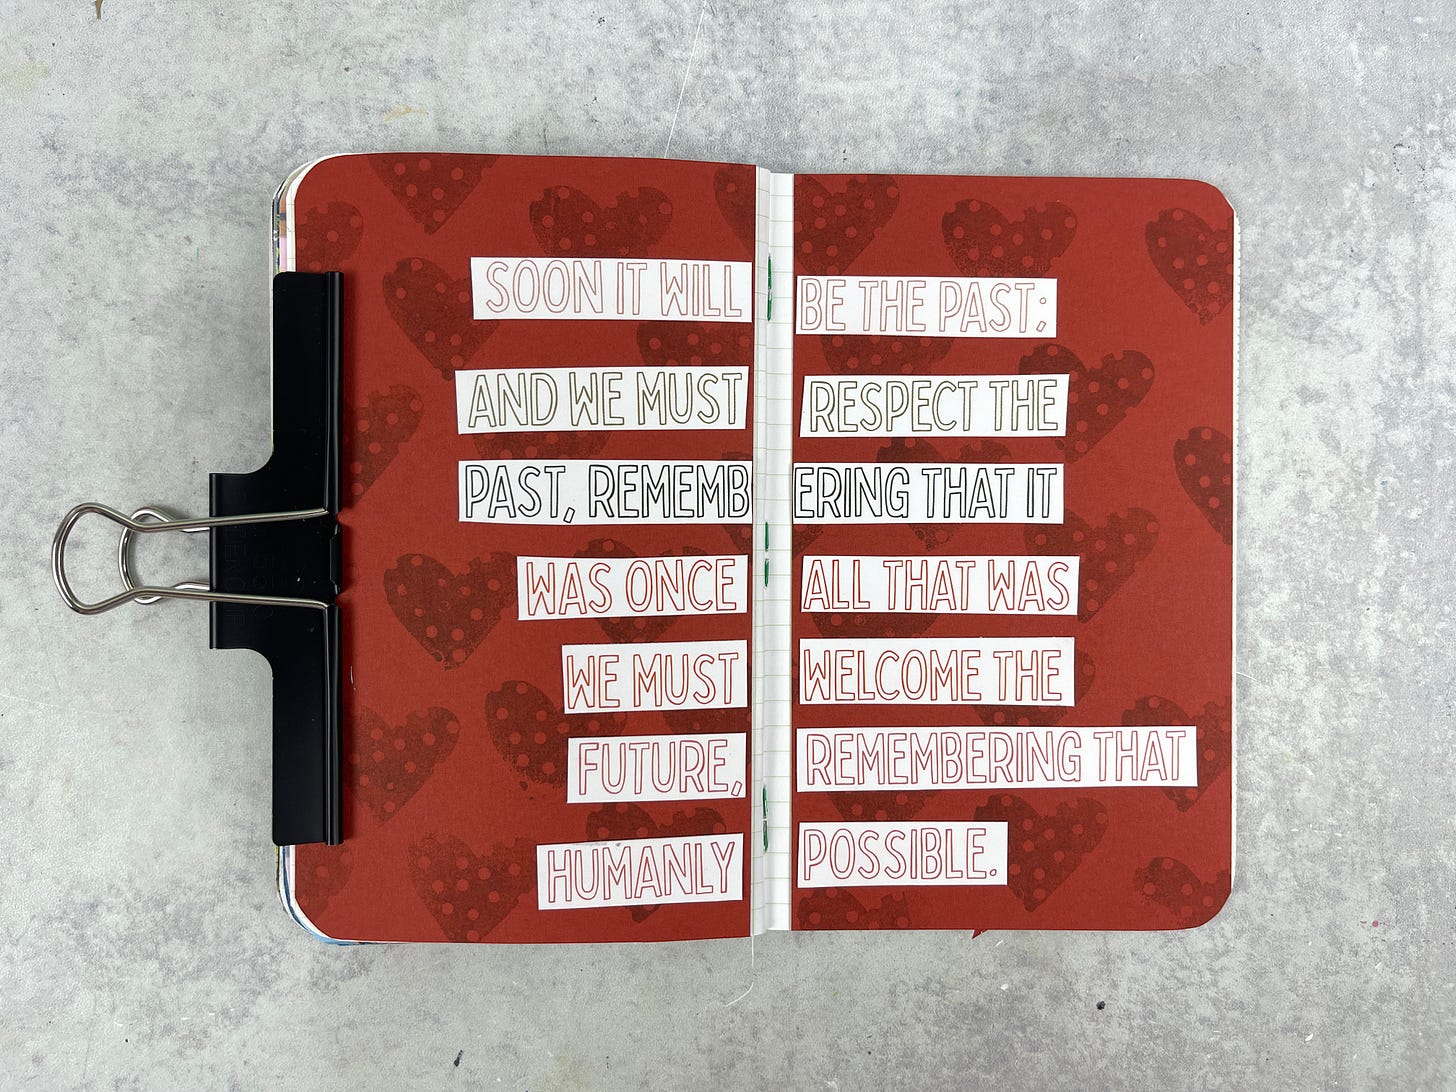 SOON IT WILL BE THE PAST;
AND WE MUST RESPECT THE
PAST, REMEMBERING THAT IT
WAS ONCE ALL THAT WAS
WE MUST WELCOME THE
FUTURE, REMEMBERING THAT
HUMANLY POSSIBLE.